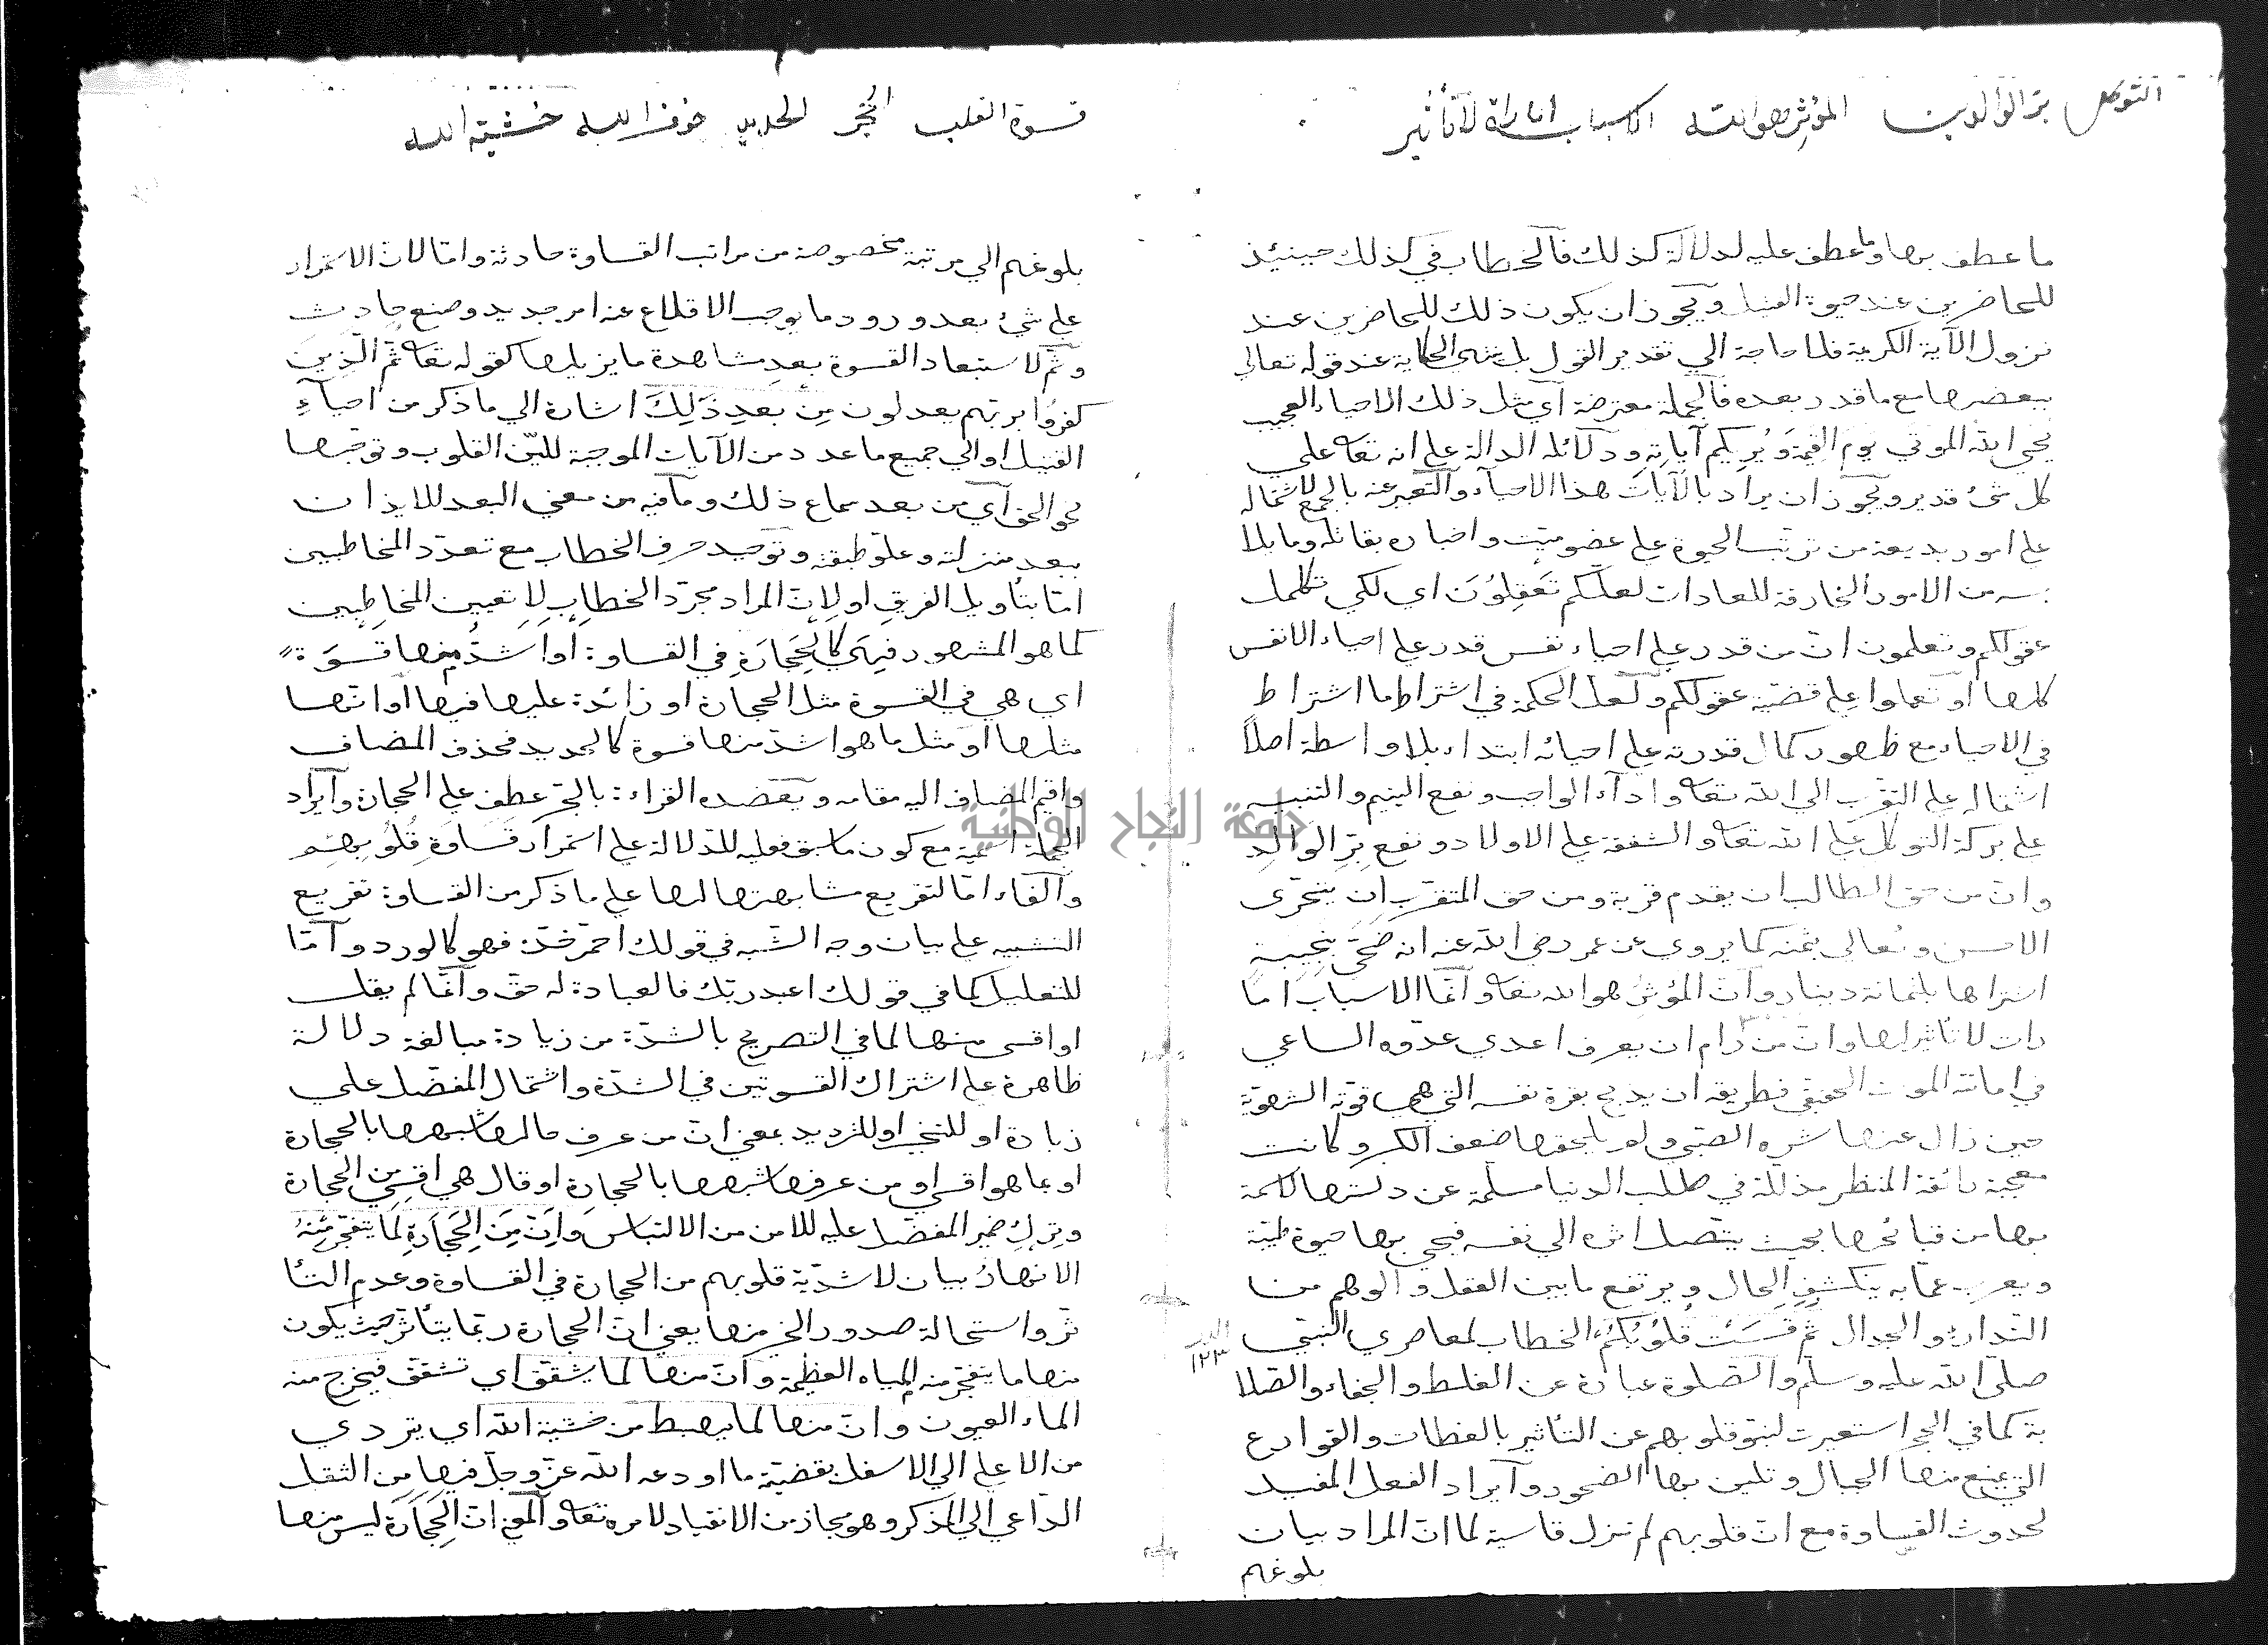 التوكل بر الوالدين المؤثر هو الله الاسباب امارات لا تأثير
ما عطف بها وما عطف عليه لدلالة كذلك فالخطاب في كذلك حينئذ
للحاضرين عند حيوة القتيل ويجوز ان يكون ذلك للحاضرين عند
نزول الآية الكريمة فلا حاجة الى تقدير القول بل تنتهي الحكاية عند قوله تعالى
ببعضها مع ما قدر بعده فالجملة معترضة اي مثل ذلك الاحياء العجيب
يحي الله الموتى يوم القيمة ويريكم آياته ودلائله الدالة على انه تعا على
كل شئ قدير ويجوز ان يراد بالآيات هذا الاحياء والتعبير عنه بالجمع لاشتماله
على امور بديعة من ترتب الحيوة على عضو ميت واخباره بقاتله وما يلا
بسه من الامور الخارقة للعادات لعلكم تعقلون اي لكي تكمل
عقولكم وتعلمون ان من قدر على احياء نفس قدر على احياء الانفس
كلها او تعملوا على قضية عقولكم ولعل الحكمة في اشتراط ما اشترط
في الاحياء مع ظهور كمال قدرته على احيائه ابتداء بلا واسطة اصلا
اشتماله على التقرب الى الله تعا واداء الواجب ونفع اليتيم والتنبيه
على بركة التوكل على الله تعا والشفقة على الاولاد ونفع بر الوالد
وان من حق الطالب ان يقدم قربة ومن حق المتقرب ان يتحرى
الاحسن ويغالي بثمنه كما يروى عن عمر رضي الله عنه انه ضحى بنجيبة
اشتراها بثلثمائة دينار وان المؤثر هو الله تعا وانما الاسباب اما
رات لا تأثير لها وان من رام ان يعرف اعدى عدوه الساعي
في اماتته الموت الحقيقي فطريقه ان يذبح بقرة نفسه التي هي قوته الشهوية
حين زال عنها شره الصبى ولم يلحقها ضعف الكبر وكانت
معجبة رائقة المنظر مذللة في طلب الدنيا مسلمة عن دنسها لا سمة
بها من قبائحها بحيث يتصل اثره الى نفسه فيحيى بها حيوة طيبة
ويعرب عما به ينكشف الحال ويرتفع ما بين العقل والوهم من
التدارؤ والجدال ثم قست قلوبكم الخطاب لمعاصري النبي
١٢٣
صلى الله عليه وسلم والقسوة عبارة عن الغلظ والجفاء والصلا
بة كما في الحجر استعيرت لنبو قلوبهم عن التأثير بالعظات والقوارع
التي تميع منها الجبال وتلين بها الصخور وايراد الفعل المفيد
لحدوث القساوة مع ان قلوبهم لم تزل قاسية لما ان المراد بيان
بلوغهم
قسوة القلب الحجر الحديد خوف الله خشية الله
بلوغهم الى مرتبة مخصوصة من مراتب القساوة حادثة واما لان الاستمرار
على شئ بعد ورود ما يوجب الاقلاع عنه امر جديد وصنع حادث
وثم لاستبعاد القسوة بعد مشاهدة ما يزيلها كقوله تعا ثم الذين
كفروا بربهم يعدلون من بعد ذلك اشارة الى ما ذكر من احياء
القتيل او الى جميع ما عدد من الآيات الموجبة للين القلوب وتوجهها
نحو الحق اي من بعد سماع ذلك وما فيه من معنى البعد للايذان
ببعد منزلته وعلو طبقته وتوحيد حرف الخطاب مع تعدد المخاطبين
اما بتأويل الفريق او لان المراد مجرد الخطاب لا تعيين المخاطبين
كما هو المشهور فهي كالحجارة في القساوة او اشد منها قسوة
اي هي في القسوة مثل الحجارة او زائدة عليها فيها او انها
مثلها او مثل ما هو اشد منها قسوة كالحديد فحذف المضاف
واقيم المضاف اليه مقامه ويعضده القراءة بالجر عطفا على الحجارة وايراد
الجملة اسمية مع كون ما سبق فعليه للدلالة على استمرار قساوة قلوبهم
والفاء اما لتفريع مشابهتها لها على ما ذكر من القساوة تفريع
التشبيه على بيان وجه الشبه في قولك احمر خده فهو كالورد واما
للتعليل كما في قولك اعبد ربك فالعبادة له حق وانما لم يقل
او اقسى منها لما في التصريح بالشدة من زيادة مبالغة دلالة
ظاهرة على اشتراك القسوتين في الشدة واشتمال المفضل على
زيادة او للتخيير او للترديد بمعنى ان من عرف حالها شبهها بالحجارة
او بما هو اقسى او من عرفها شبهها بالحجارة او قال هي اقسى من الحجارة
وترك ضمير المفضل عليه للامن من الالتباس وان من الحجارة لما يتفجر منه
الانهار بيان لاشدية قلوبهم من الحجارة في القساوة وعدم التأ
ثر واستحالة صدور الخير منها يعني ان الحجارة ربما يتأثر حيث يكون
منها ما يتفجر منه المياه العظيمة وان منها لما يشقق اي تشقق فيخرج منه
الماء العيون وان منها لما يهبط من خشية الله اي يتردى
من الاعلى الى الاسفل بقضية ما اودعه الله عز وجل فيها من الثقل
الداعي الى المركز وهو مجاز من الانقياد لامره تعا والمعنى ان الحجارة ليس منها
جامعة النجاح الوطنية